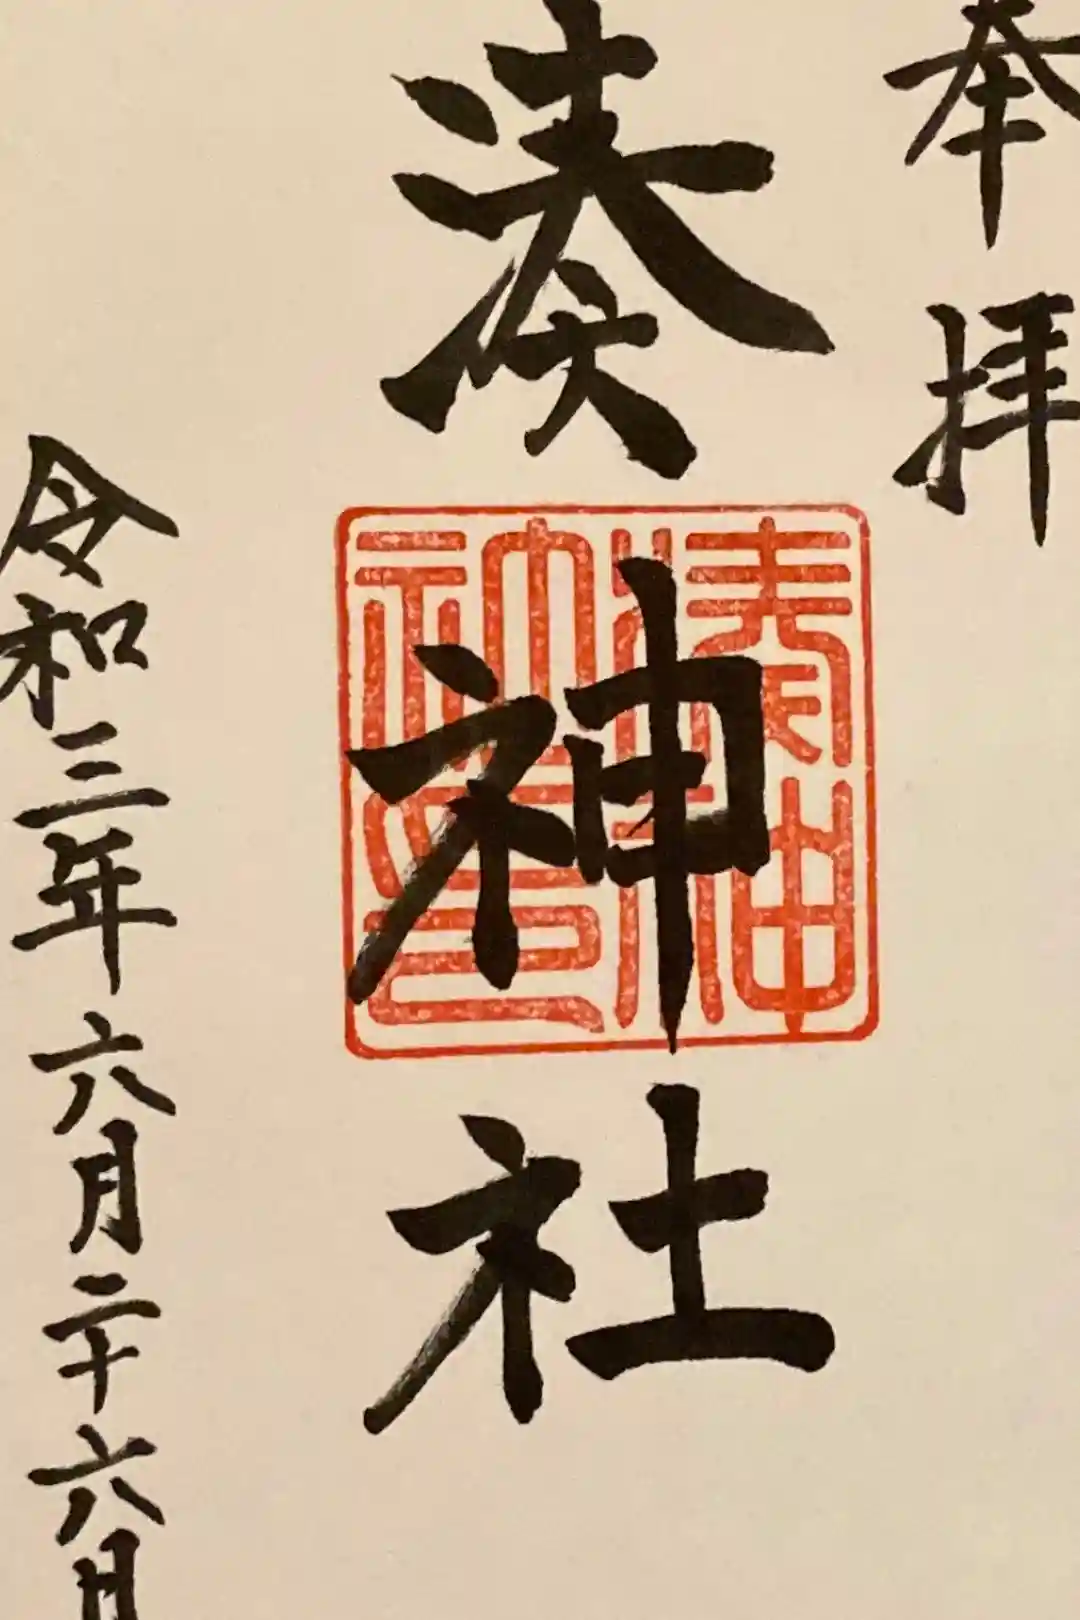 奉拝
湊神社
湊神社印
令和三年六月二十六日